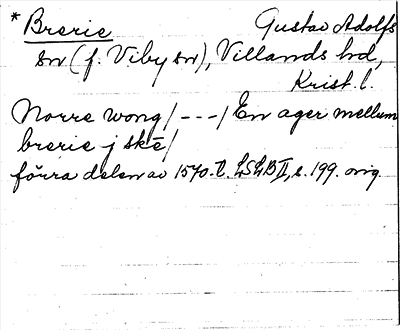 * Brerie Gustav Adolfs
sn (f. Viby sn), Villands hd,
Krist. l.
Norre wong / - - - / En ager mellum
brerie j ske /
förra delen av 1570-t. LSLB II, s. 199. orig.